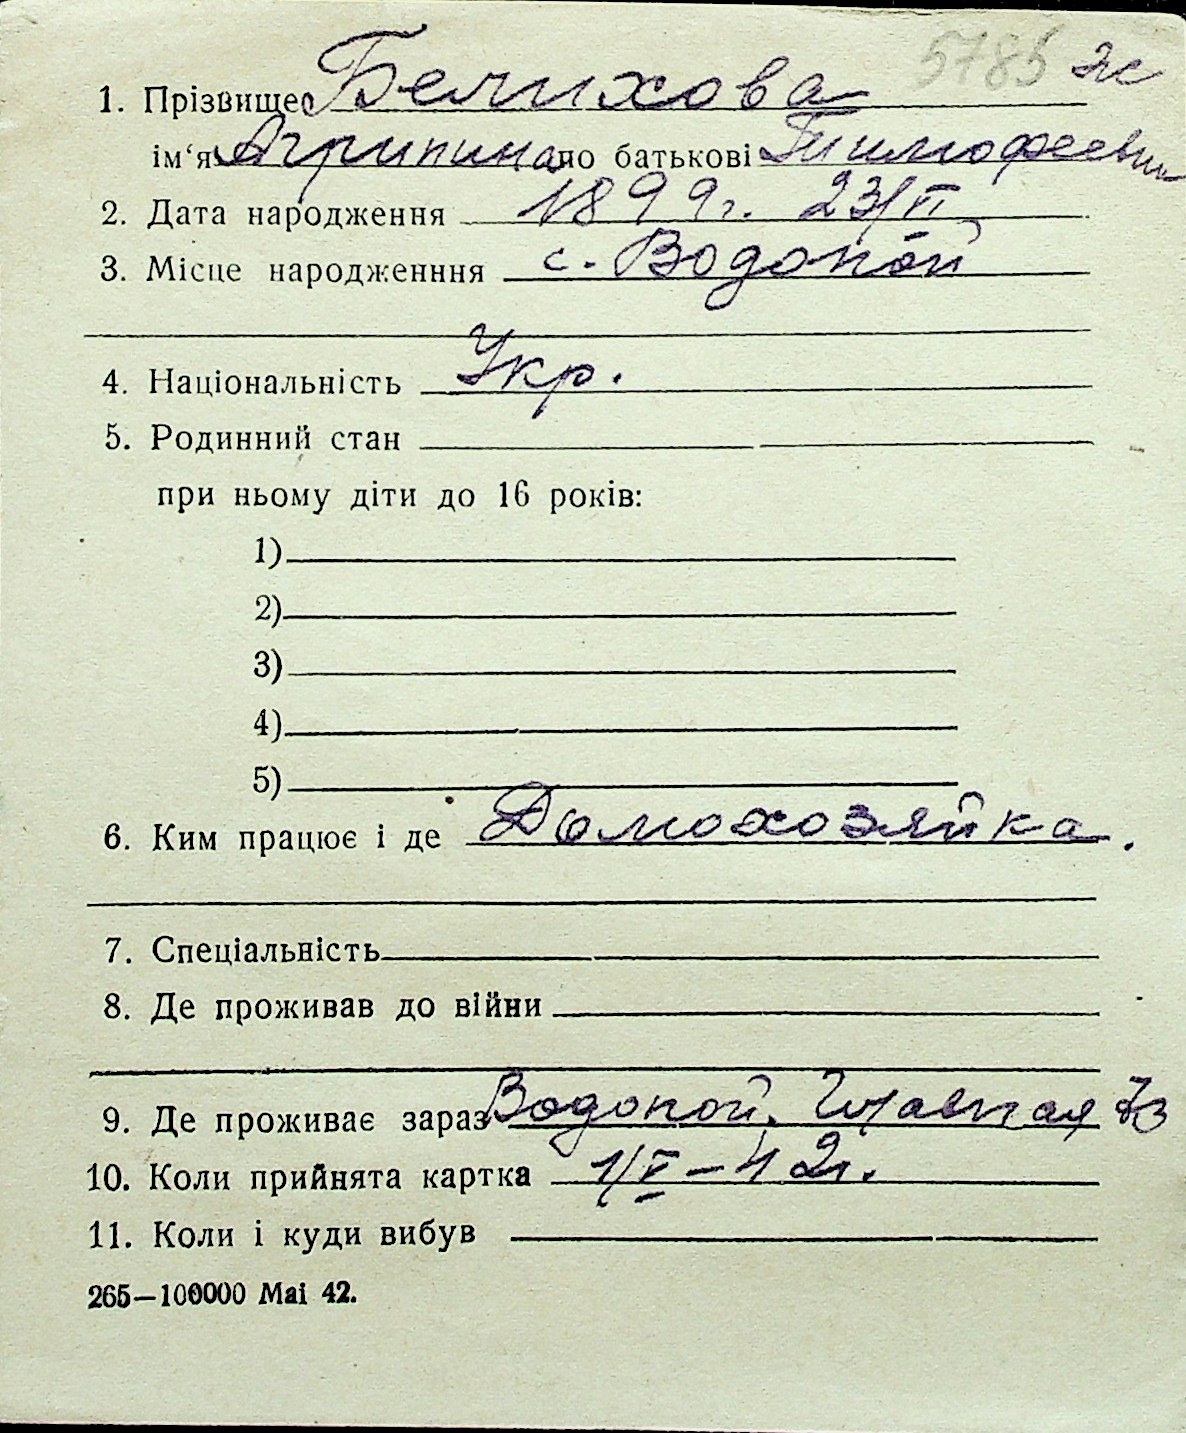 5785 ж
1. Прізвище Белихова
ім‘я Агрипина по батькові Тимофеевн
2. Дата народження 1899г. 23/VI
3. Місце народженння с. Водопой
4. Національність Укр.
5. Родинний стан
при ньому діти до 16 років:
1)
2)
3)
4)
5)
6. Ким працює і де Домохозяйка.
7. Спеціальність
8. Де проживав до війни
9. Де проживає зараз Водопой. Главная
10. Коли прийнята картка 1/V–42г.
11. Коли і куди вибув
265—100000 Mai 42.